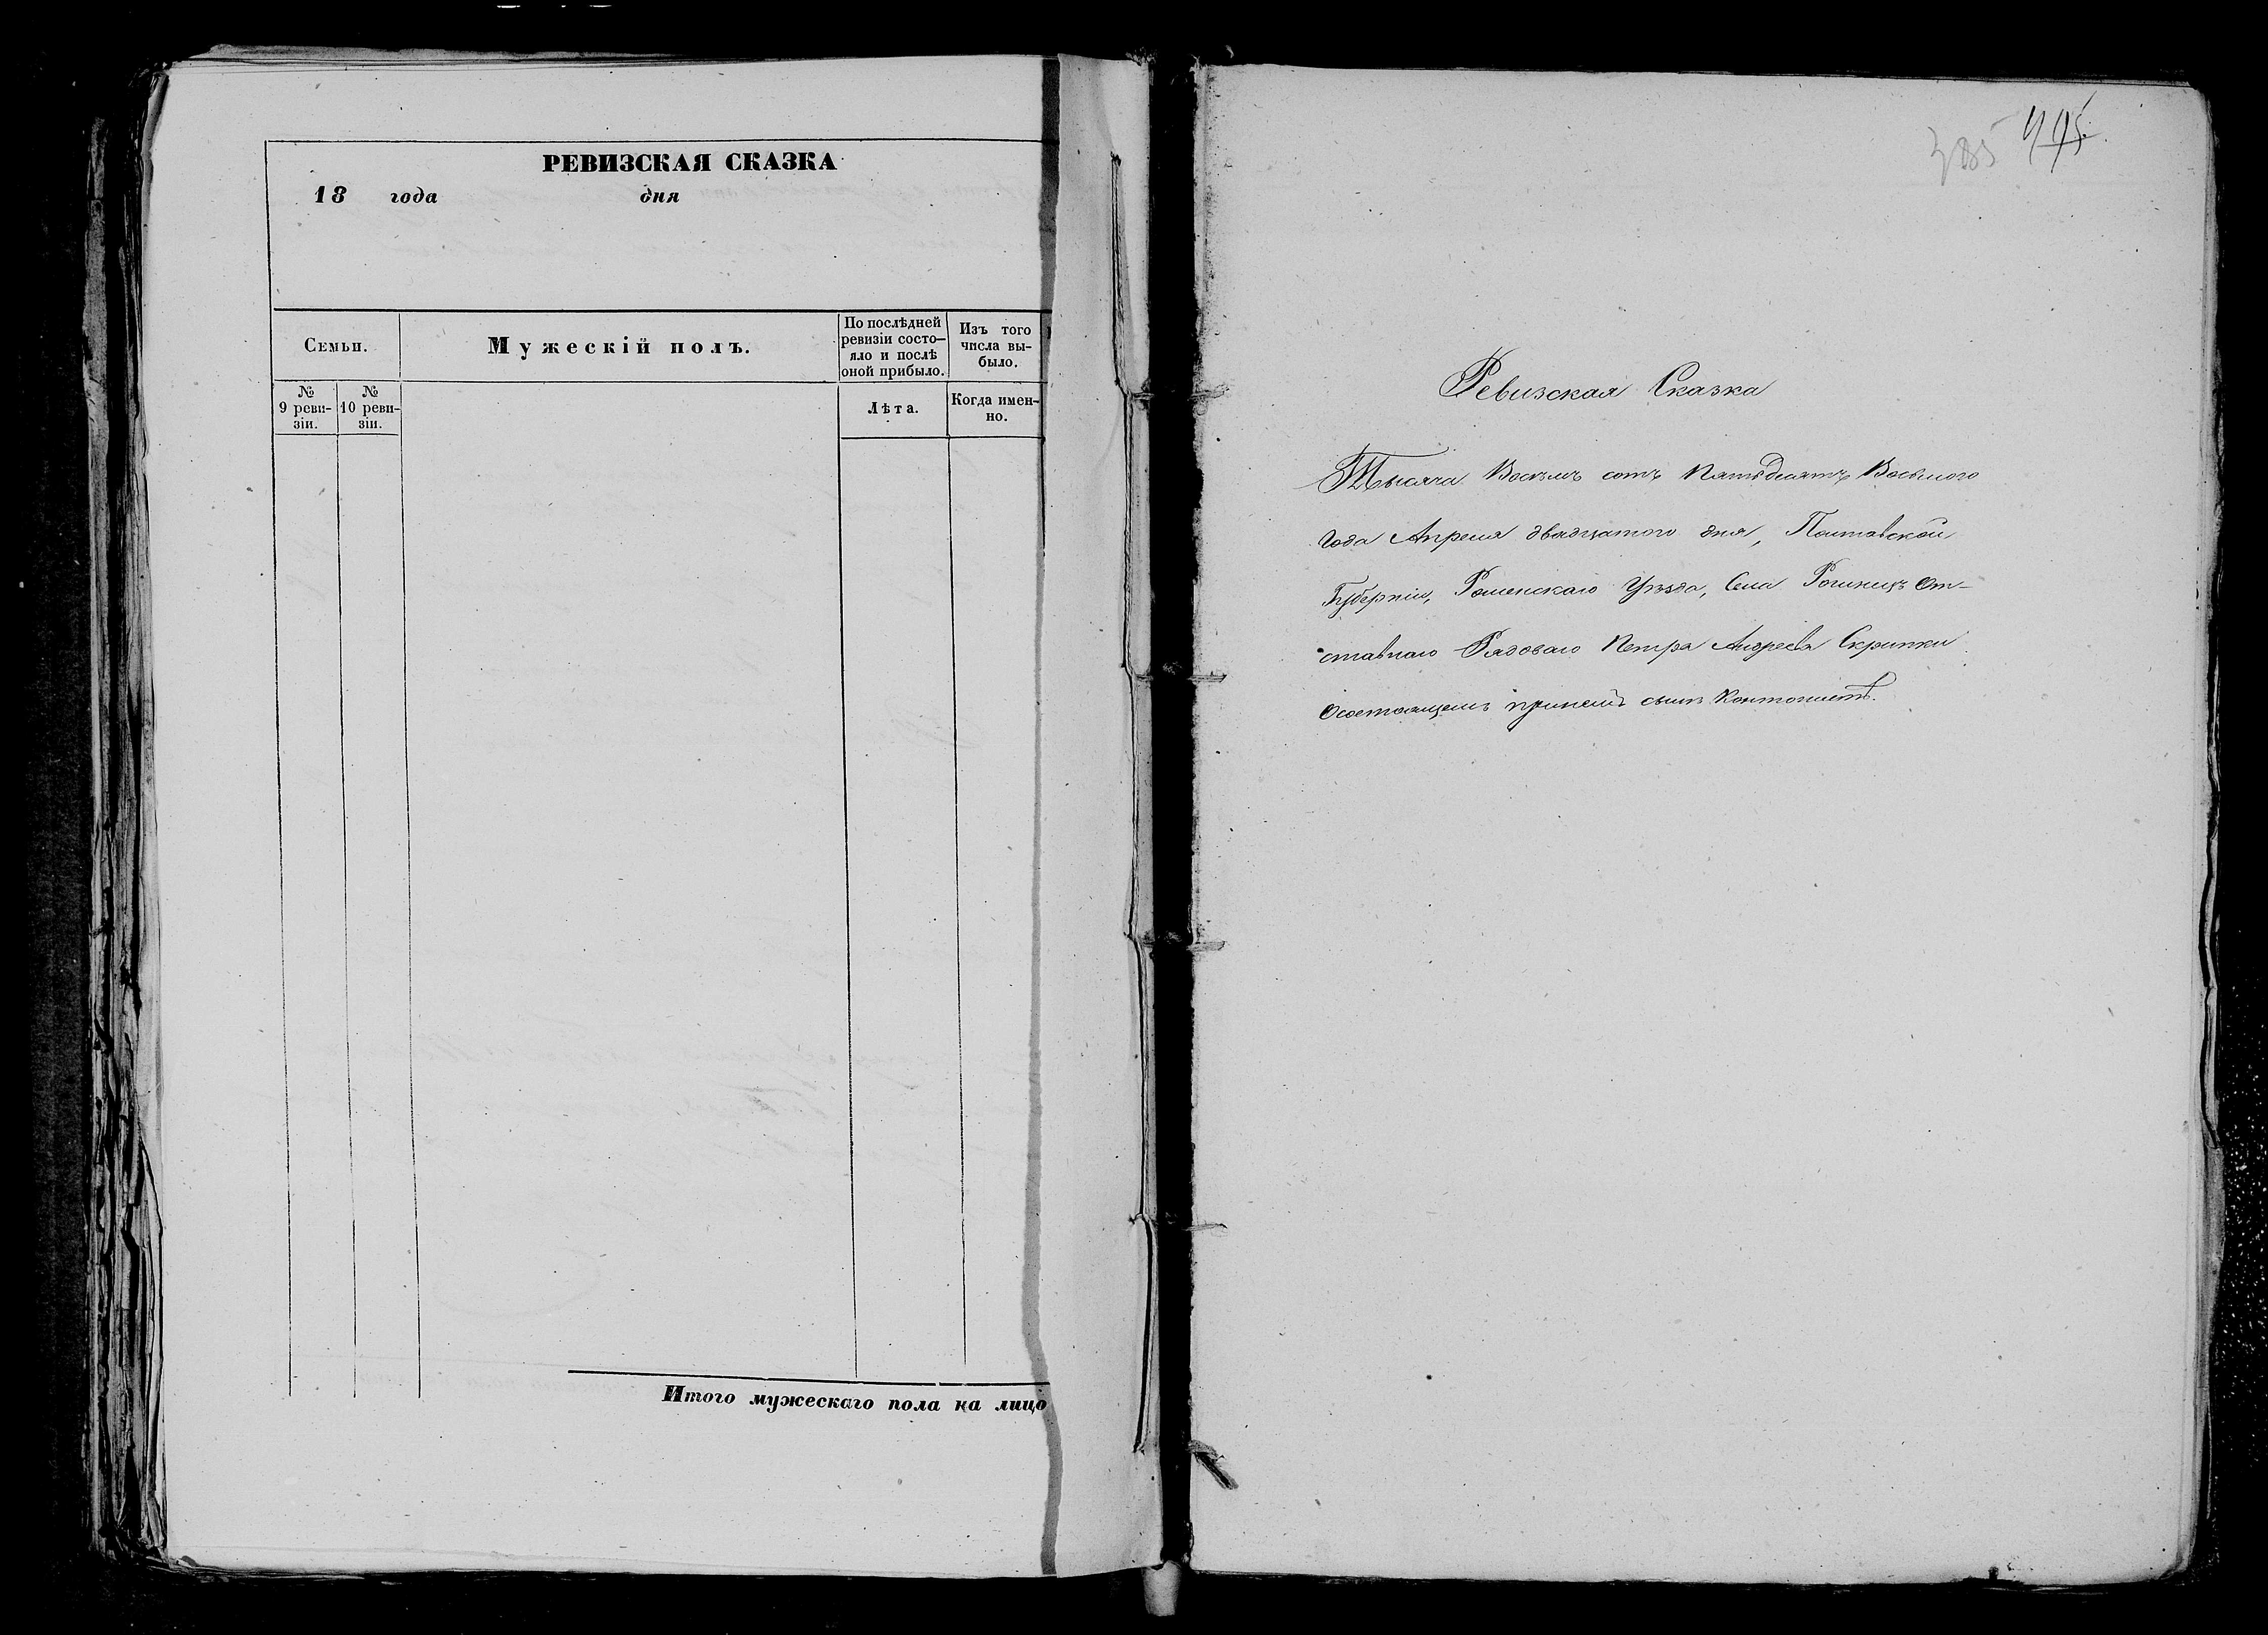 РЕВИЗСКАЯ СКАЗКА
18 года дня
Семьи.
Мужескій полъ.
По послѣдней
ревизіи состо-
яло и послѣ
оной прибыло.
Изъ того
числа вы-
было.
№
9 реви-
зіи.
№
10 реви-
зіи.
Лѣта.
Когда имен-
но.
Итого мужескаго пола на лицо
385
Ревизская Сказка
Тысяча Восемъ сотъ Пятьдесятъ Восьмого
Года Апреля двадцатого дня, Полтавской
Губерніи, Роменскаго Уѣзда, Села Рогинецъ От-
ставнаго Рядоваго Петра Андреева Скрипки
Осостоящемъ принемъ сынѣ Контонистѣ.